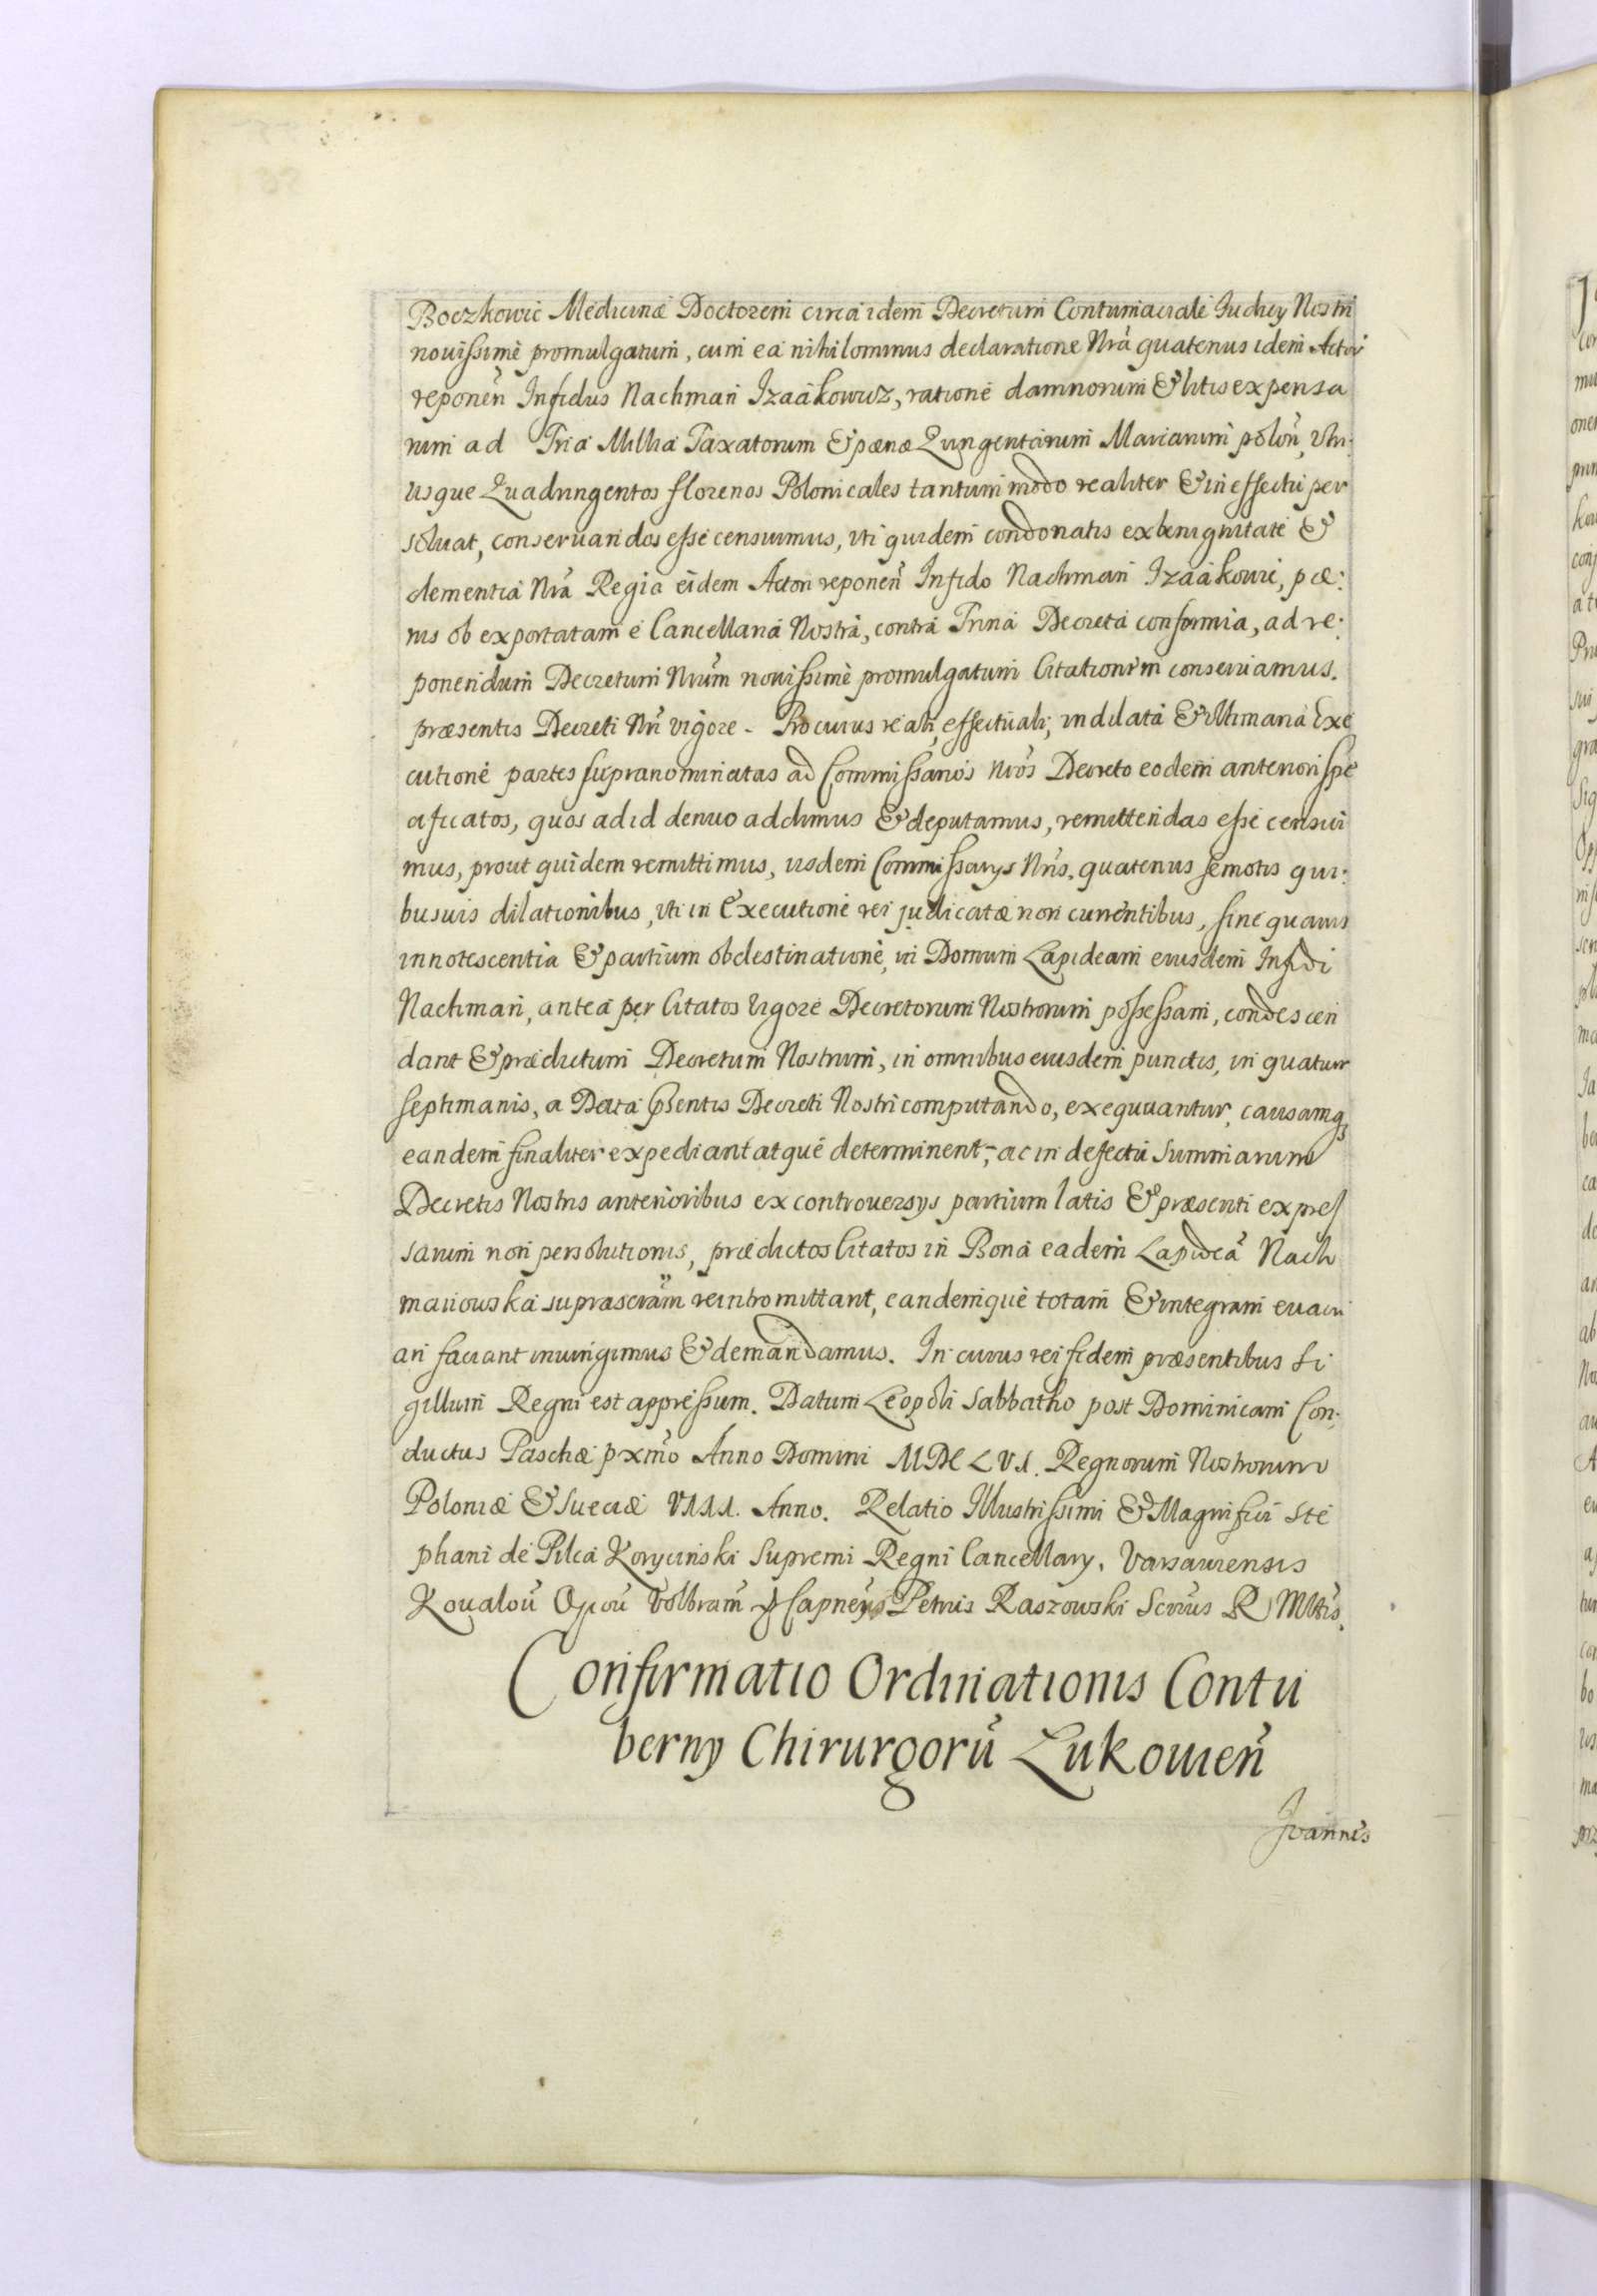 Boczkowic Medicinæ Doctorem circa idem Decretum Contumaciale Iudicy Nostri
nouißimè promulgatum, cum ea nihilominus declaratione Nrã quatenus idem Actor
reponeñ Infidus Nachman Izaakowicz, ratione damnorum & litis expensa
rum ad Tria Millia Taxatorum & pænæ Quingentarum Marcarum poloñ, Vltr:
usque Quadringentos florenos Polonicales tantum modo realiter & in effectu per
soluat, conseruandos eßè censuimus, vti quidem condonatis ex benignitate &
clementia Nrã Regia eidem Actori reponeñ Infido Nachman Izaakowic, pæ:
nis ob exportatam è Cancellaria Nostra, contra Trina Decreta conformia, ad re:
ponendum Decretum Nrũm nouißimè promulgatum Citationem conseruamus.
præsentis Decreti Nrĩ vigore. Pro cuius reali, effectuali, indilata & Vltimaria Exe
cutione partes supranominatas ad Commißarios Nrõs Decreto eodem anteriori spe
cificatos, quos ad id denuo addimus & deputamus, remittendas eße censui
mus, prout quidem remittimus, ijsdem Commißarys Nrĩs, quatenus semotis qui:
busuis dilationibus, vti in Executione rei judicatæ non currentibus, sine quauis
innotescentia & partium obdestinatione, in Domum Lapideam eiusdem Infidi
Nachman, antea per Citatos vigore Decretorum Nostrorum poßeßam, condescen
dant & prædictum Decretum Nostrum, in omnibus eiusdem punctis, in quatuor
septimanis, a Data pñsentis Decreti Nostri computando, exequuantur, causamq3
eandem finaliter expediant atquè determinent, ac in defectu Summarum
Decretis Nostris anterioribus ex controuersys partium latis & præsenti expres
sarum non persolutionis, prædictos Citatos in Bona eadem Lapideã Nach
manowska suprascrãm reintromittant, eandemquè totam & integram euacu
ari faciant iniungimus & demandamus. In cuius rei fidem præsentibus Si
gillum Regni est appreßum. Datum Leopoli Sabbatho post Dominicam Con:
ductus Paschæ pxmõ Anno Domini MDCLVI. Regnorum Nostrorum
Poloniæ & Sueciæ VIII. Anno. Relatio Illustrißimi & Magnifici Ste
phani de Pilca Koryciński Supremi Regni Cancellary, Varsauiensis
Koualoũ Ojcoũ Volbram̃ Capneys Petrus Raszowski Scrĩus R Mttis.
Confirmatio Ordinationis Contu
berny Chirurgorũ Lukowieñ
Joannes